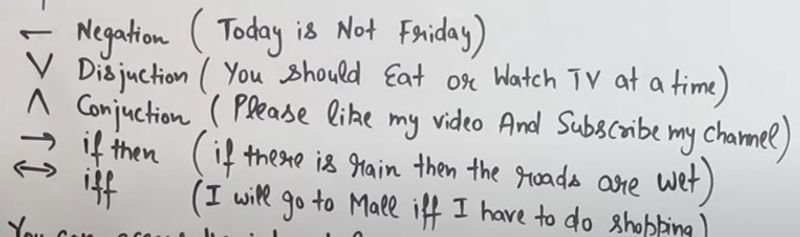 ← Negation ( Today is Not Friday)
∨ Disjuction ( You should Eat or Watch TV at a time)
∧ Conjuction ( Please like my video And Subscribe my channel)
→ if then (if there is rain then the roads are wet)
↔ iff (I will go to Mall iff I have to do shopping)
You can